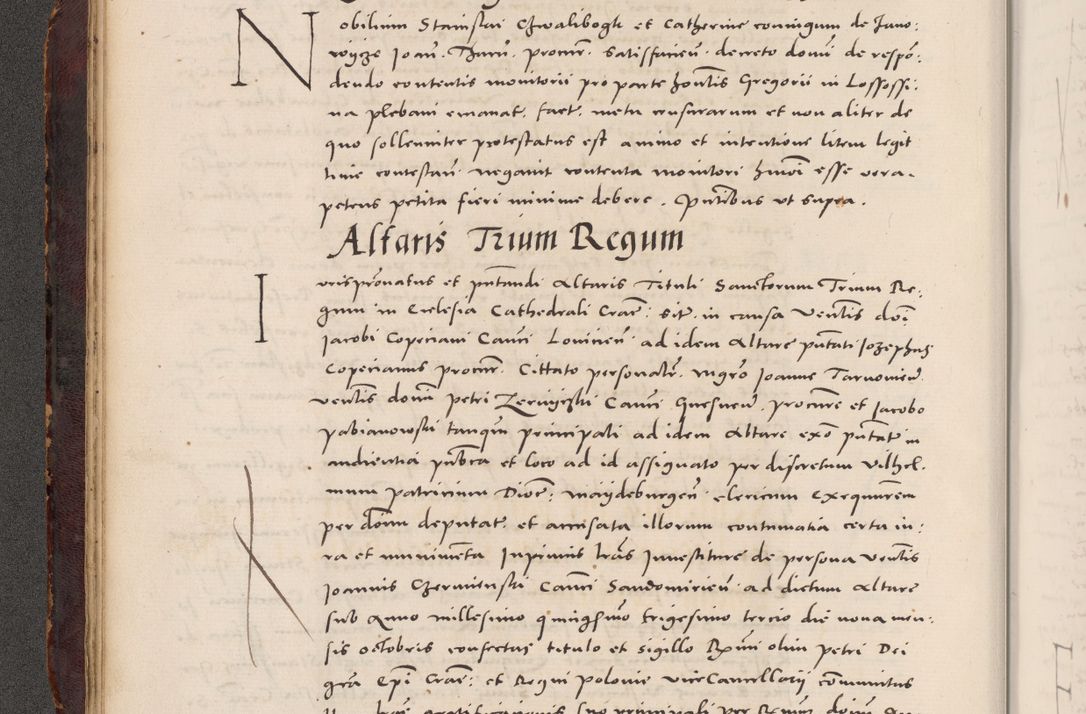 Nobilium Stanislai Chwalibogh et Catherine coniugum de Jano:
wycze Joan. Tharn. procur. satisfacien. decreto domi de respon:
dendo contentis monitorii pro parte hontis Gregorii in Lossossi:
na plebani emanat. fact. metu censurarum et non aliter de
quo sollenniter protestatus est animo et intentione litem legit
time contestan. negavit contenta monitorii hmoi esse vera.
petens petita fieri minime debere. Pntibus ut supra.
Altaris Trium Regum
Iurispronatus et pntandi Altaris Tituli Sanctorum Trium Re:
gum in Ecclesia Cathedrali Crac. sit. in causa Ventis doi
Jacobi Copeciani Canci Lovicien. ad idem Altare pntati Jozephus
Copecianus procur. Cittato personalr. mgro Joanne Tarnovien.
ventis domi petri Zernyczki Canci Gnesnen. procure et Jacobo
pabianowski tanqm principali ad idem Altare exo pntato in
audientia pubca et loco ad id assignato per discretum Vilhel:
mum patricium Dioc. maydeburgen clericum Exequurem
per doim deputat. et accusata illorum contumatia certa iu:
ra et munimenta Inprimis lras Investiture de persona Ventis
Joannis Czernienski Canci Sandomirien. ad dictum Altare
sub Anno millesimo quingsmo trigesimo tercio die nona men:
sis octobris confectas titulo et sigillo Rxmi olim petri Dei
gra Epi Crac. et Regni polonie viceCancellarii communitas